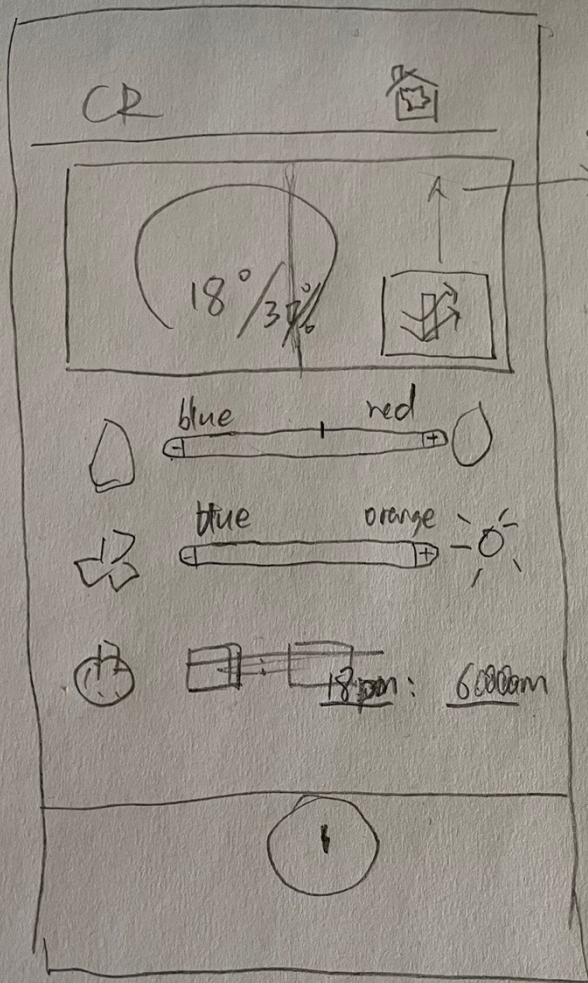 CR
18°/37%
blue red
- +
blue orange
- +
18 pm: 6:00am